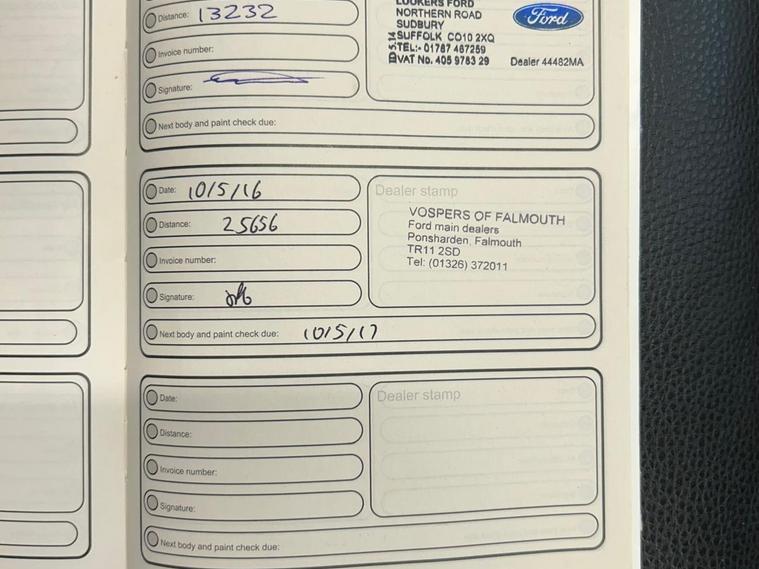 Distance: 13232
Invoice number:
Signature:
Next body and paint check due:
LOOKERS FORD
NORTHERN ROAD
SUDBURY
SUFFOLK CO10 2XQ
TEL:- 01787 467259
VAT No. 405 9783 29
Ford
Dealer 44482MA
Date: 10/5/16
Distance: 25656
Invoice number:
Signature:
Next body and paint check due: 10/5/17
Dealer stamp
VOSPERS OF FALMOUTH
Ford main dealers
Ponsharden, Falmouth
TR11 2SD
Tel: (01326) 372011
Date:
Distance:
Invoice number:
Signature:
Next body and paint check due:
Dealer stamp